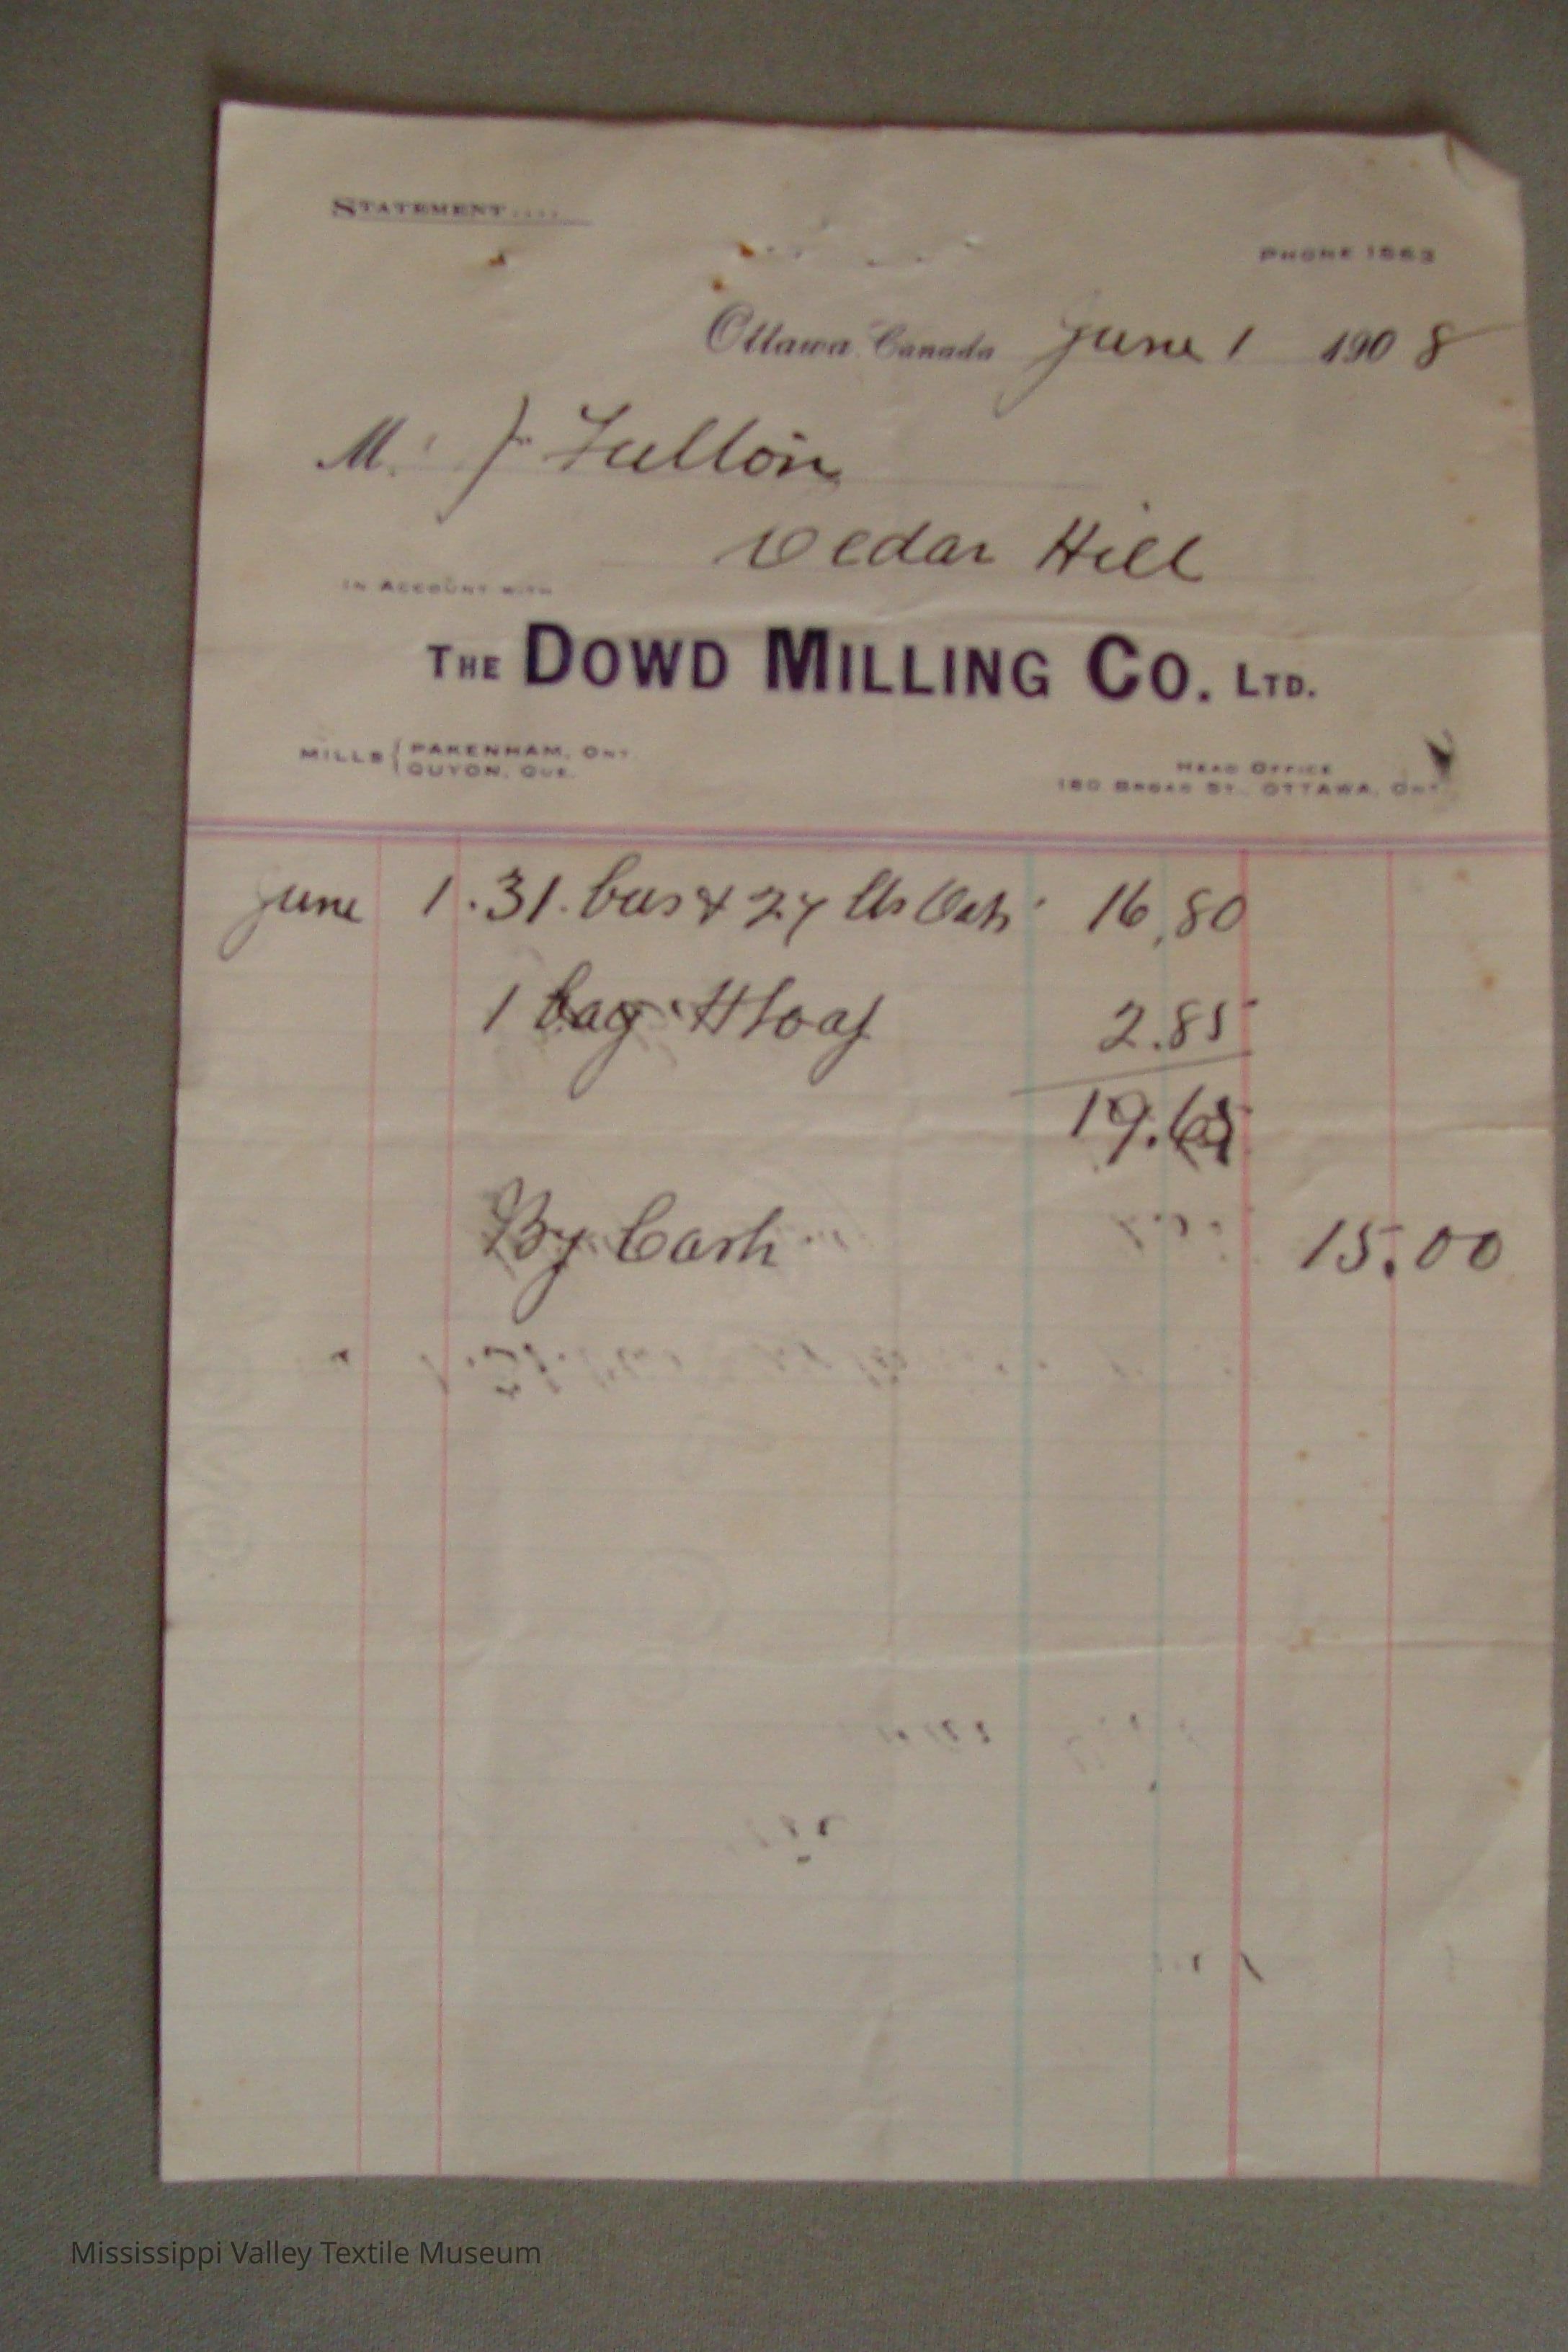 STATEMENT....
PHONE 1563
Ottawa, Canada June 1 1908
M. J. Fulton
Cedar Hill
IN ACCOUNT WITH
THE DOWD MILLING CO. LTD.
MILLS { PAKENHAM, ONT.
QUYON, QUE.
HEAD OFFICE
180 BROAD ST., OTTAWA, ONT.
June 1. 31. bus & 27 lbs Oats 16.80
1 bag H loaf 2.85
19.65
By Cash 15.00
Mississippi Valley Textile Museum